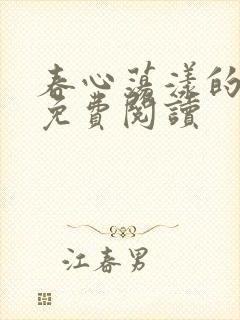 春心蕩漾的
免費閱讀
江春男